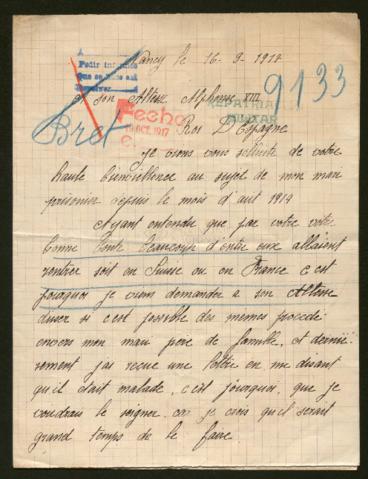 Nancy le 16-9-1917
Pedir informes
A son Altesse Alphonse XIII
9133
REPATRIA
MILITAR
Fecha
OCT. 1917
Roi D'Espagne
Bret
je viens vous solliciter de votre
haute bienveillence au sujet de mon mari
prisonier depuis le mois d'aut 1914
Ayant entendu que par votre
bonté Beaucoup d'entre eux allaient
rentrer soit en Suisse ou en France c'est
pourquoi je viens demander a son Altesse
si c'est possible des memes procédé
envers mon mari père de famille, et derniè-
rement j'ai recue une lettre en me disant
qu'il était malade, c'est pourquoi, que je
voudrai le soigner car je crois qu'il serait
grand temps de le faire.